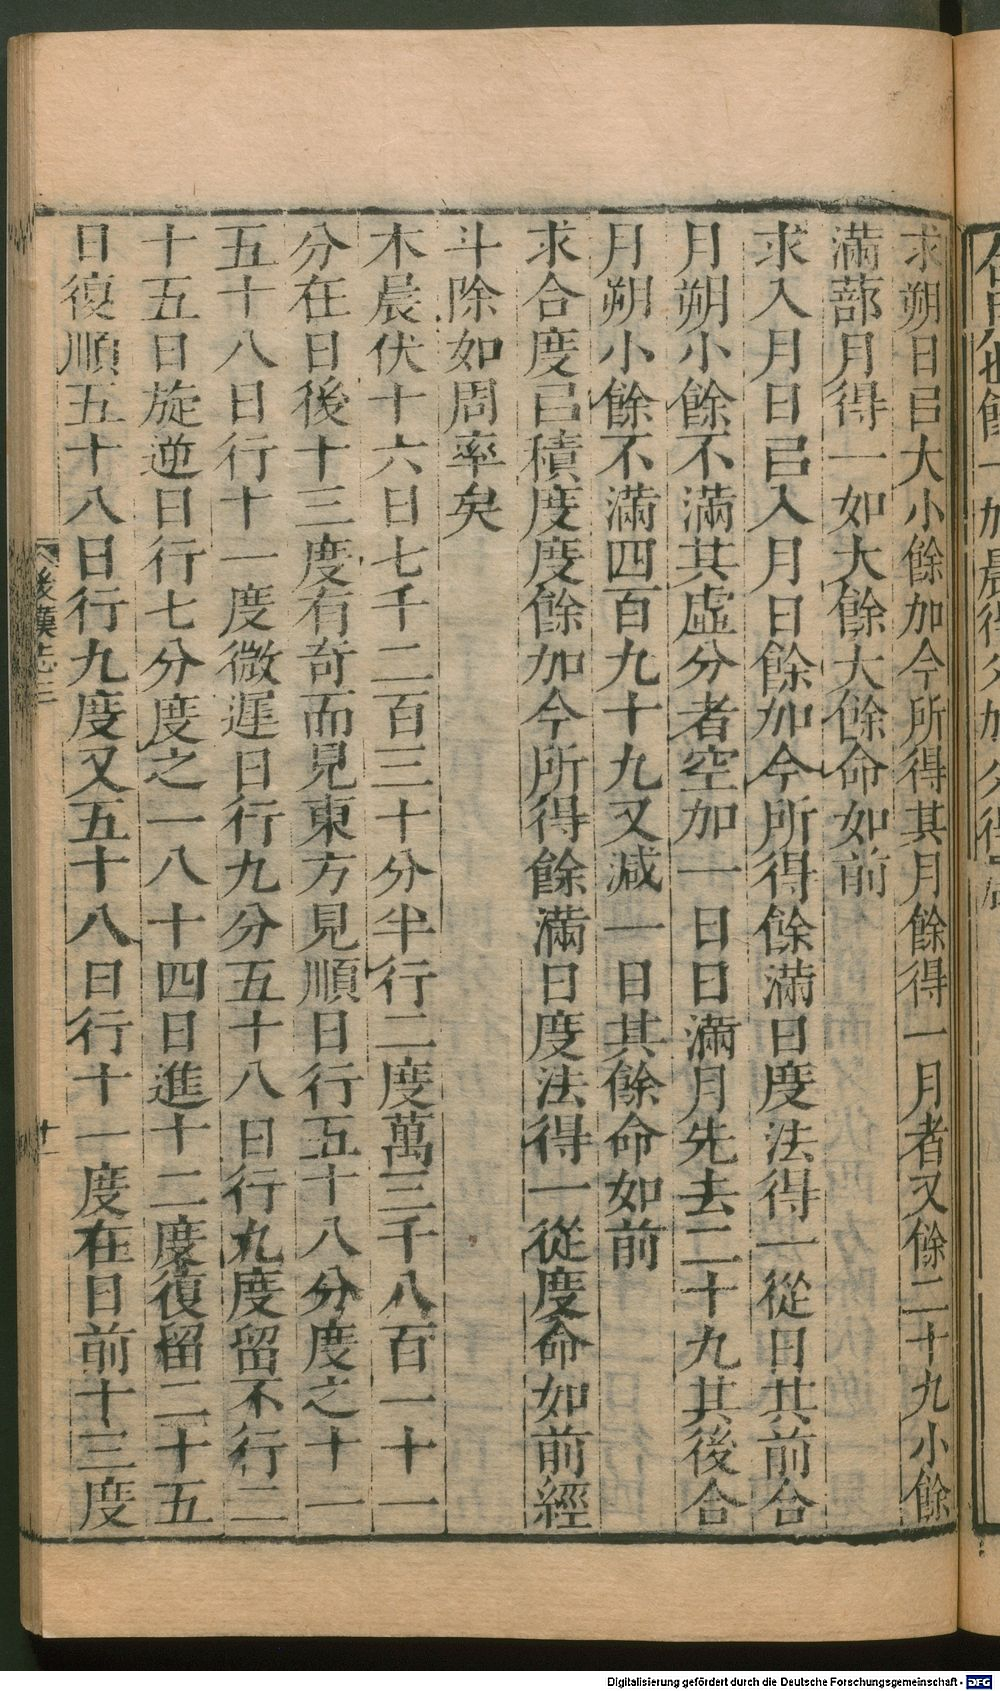 求朔日㠯大小餘加今所得其月餘得一月者又餘二十九小餘
滿蔀月得一如大餘大餘命如前
求入月日㠯入月日餘加今所得餘滿日度法得一從日其前合
月朔小餘不滿其虛分者空加一日日滿月先去二十九其後合
月朔小餘不滿四百九十九又減一日其餘命如前
求合度㠯積度度餘加今所得餘滿日度法得一從度命如前經
斗除如周率矣
木晨伏十六日七千二百三十分半行二度萬三千八百一十一
分在日後十三度有奇而見東方見順日行五十八分度之十一
五十八日行十一度微遲日行九分五十八日行九度留不行二
十五日旋逆日行七分度之一八十四日進十二度復留二十五
日復順五十八日行九度又五十八日行十一度在日前十三度
後漢志三
十一
Digitalisierung gefördert durch die Deutsche Forschungsgemeinschaft - DFG